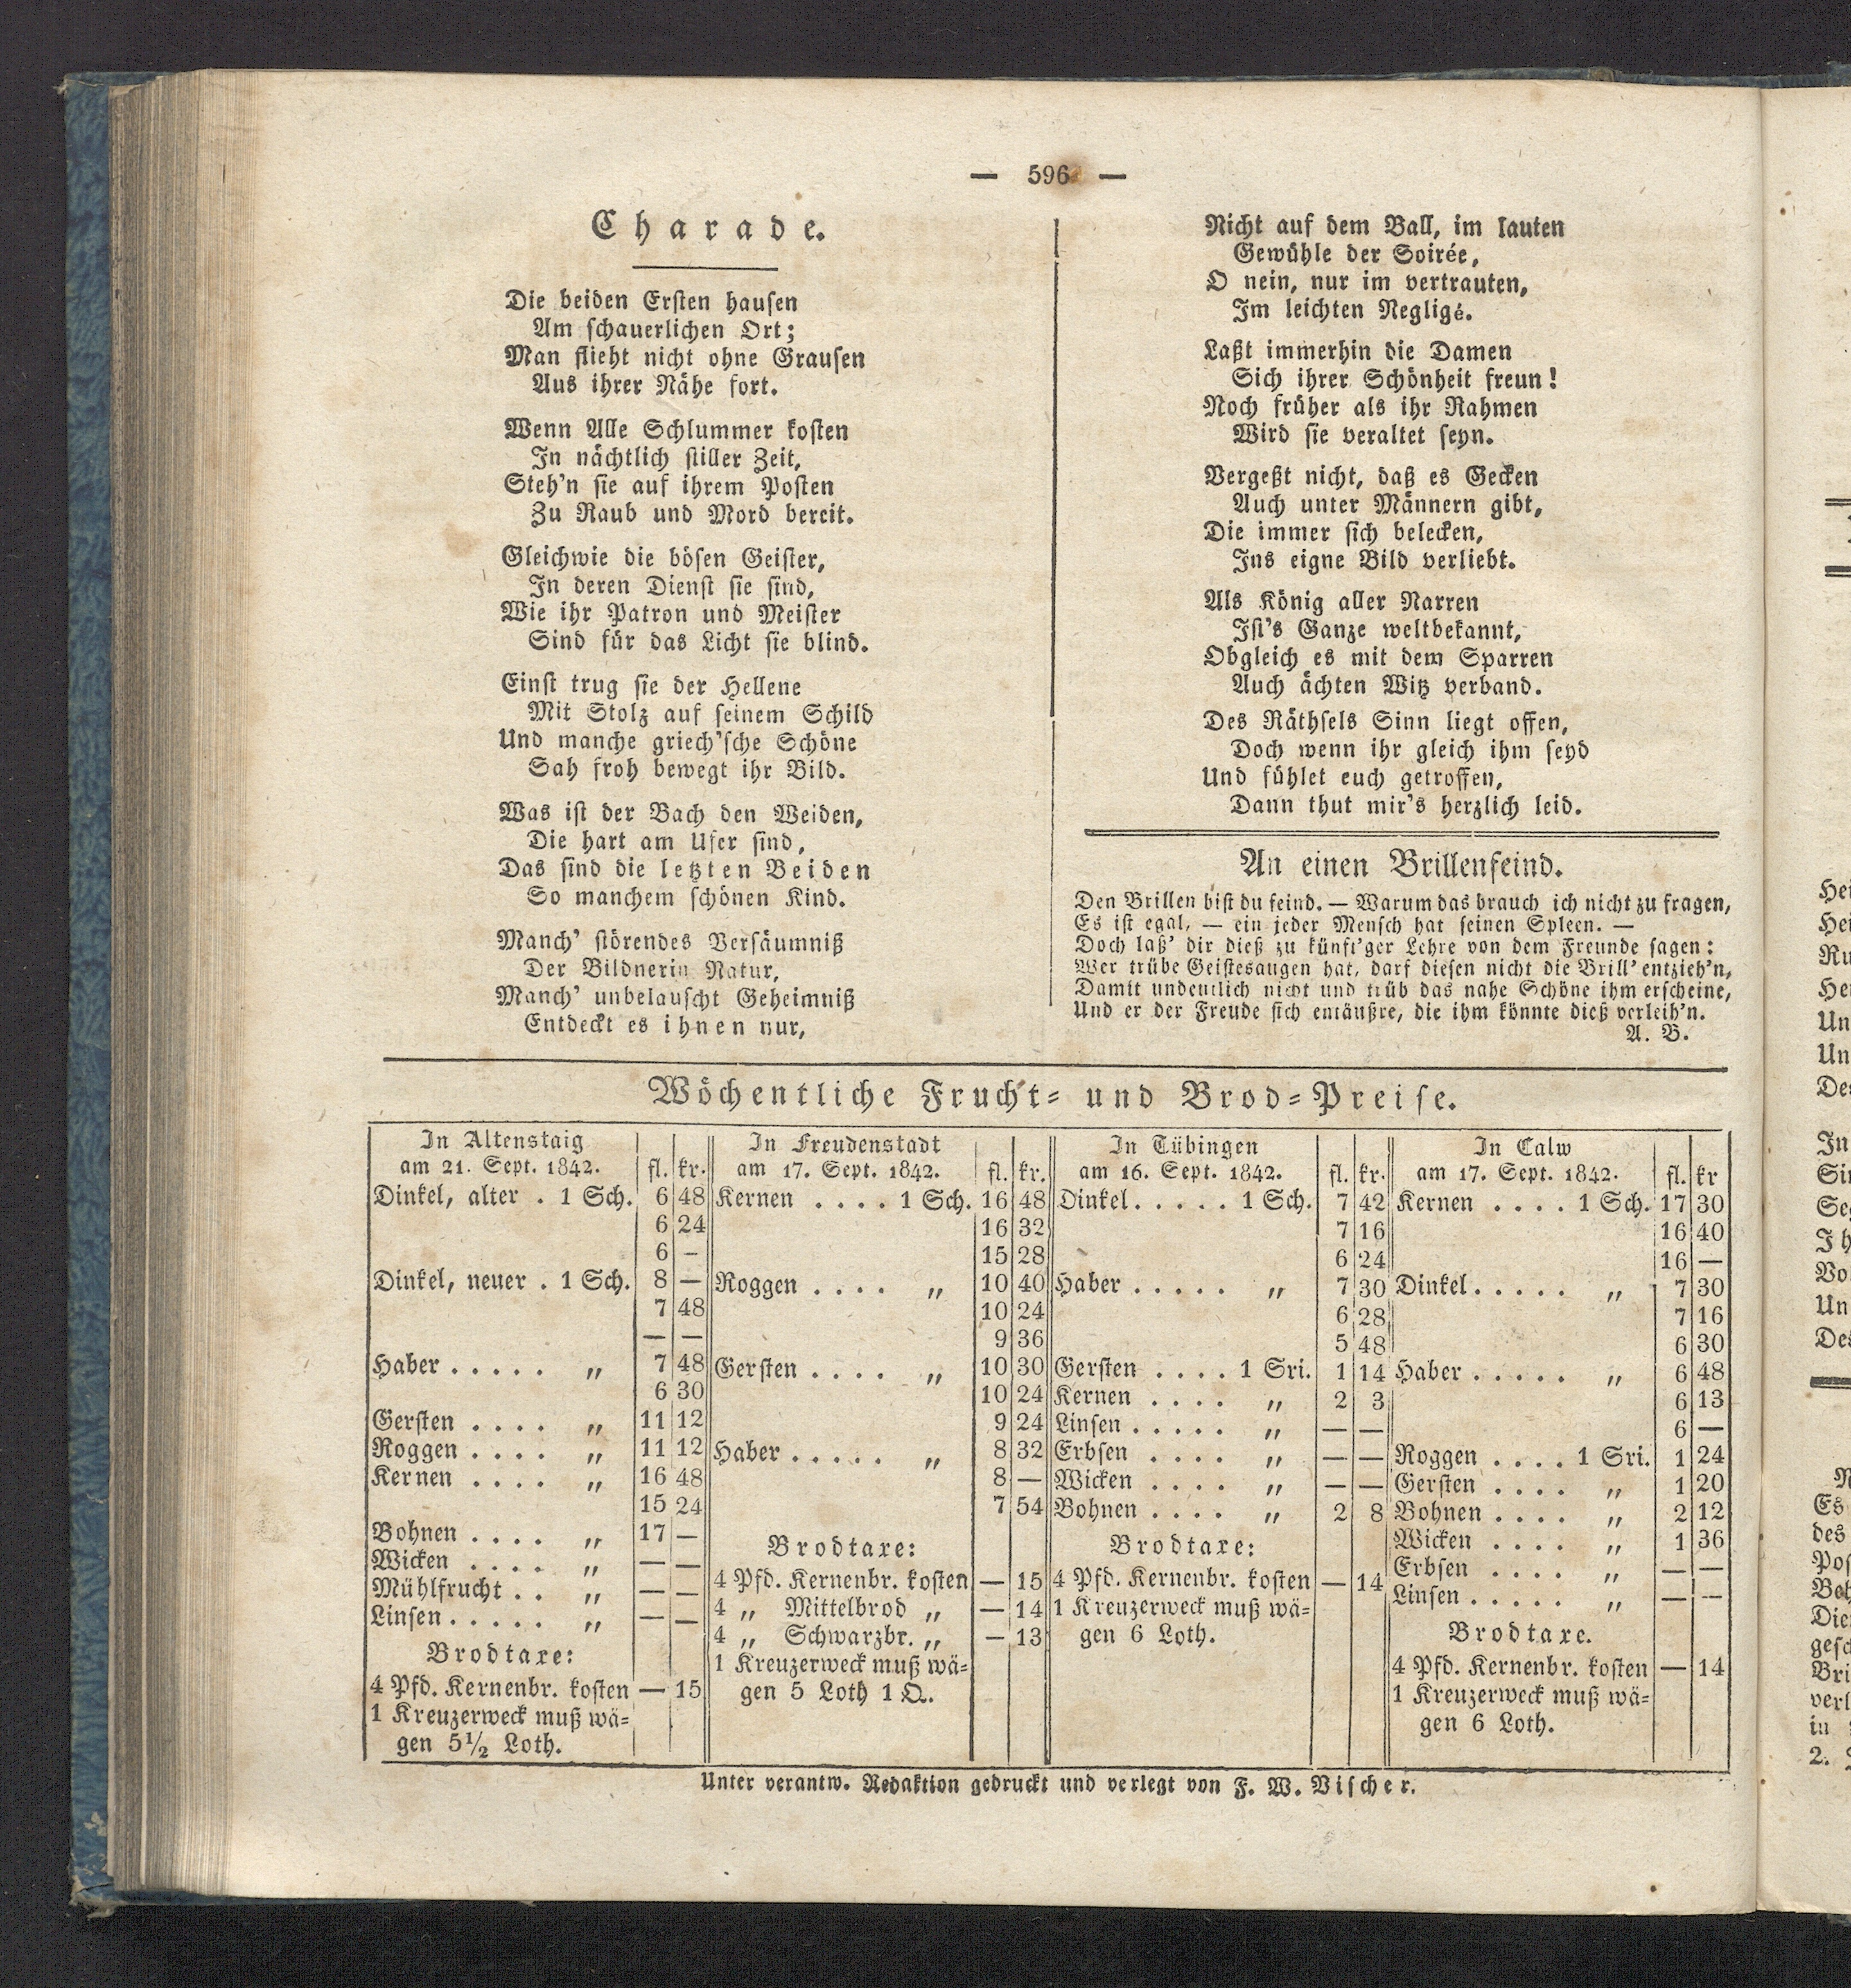 — 596 —
Charade.
Die beiden Ersten hausen
Am schauerlichen Ort;
Man flieht nicht ohne Grausen
Aus ihrer Nähe fort.
Wenn Alle Schlummer kosten
In nächtlich stiller Zeit,
Steh'n sie auf ihrem Posten
Zu Raub und Mord bereit.
Gleichwie die bösen Geister,
In deren Dienst sie sind,
Wie ihr Patron und Meister
Sind für das Licht sie blind.
Einst trug sie der Hellene
Mit Stolz auf seinem Schild
Und manche griech'sche Schöne
Sah froh bewegt ihr Bild.
Was ist der Bach den Weiden,
Die hart am Ufer sind,
Das sind die letzten Beiden
So manchem schönen Kind.
Manch' störendes Versäumniß
Der Bildnerin Natur,
Manch' unbelauscht Geheimniß
Entdeckt es ihnen nur,
Nicht auf dem Ball, im lauten
Gewühle der Soirée,
O nein, nur im vertrauten,
Im leichten Negligé.
Laßt immerhin die Damen
Sich ihrer Schönheit freun!
Noch früher als ihr Rahmen
Wird sie veraltet seyn.
Vergeßt nicht, daß es Gecken
Auch unter Männern gibt,
Die immer sich belecken,
Ins eigne Bild verliebt.
Als König aller Narren
Ist's Ganze weltbekannt,
Obgleich es mit dem Sparren
Auch ächten Witz verband.
Des Räthsels Sinn liegt offen,
Doch wenn ihr gleich ihm seyd
Und fühlet euch getroffen,
Dann thut mir's herzlich leid.
An einen Brillenfeind.
Den Brillen bist du feind. — Warum das brauch ich nicht zu fragen,
Es ist egal, — ein jeder Mensch hat seinen Spleen. —
Doch laß' dir dieß zu künft'ger Lehre von dem Freunde sagen:
Wer trübe Geistesaugen hat, darf diesen nicht die Brill' entzieh'n,
Damit undeutlich nicht und trüb das nahe Schöne ihm erscheine,
Und er der Freude sich entäußre, die ihm könnte dieß verleih'n.
A. B.
Wöchentliche Frucht- und Brod-Preise.
In Altenstaig
am 21. Sept. 1842. fl. kr.
Dinkel, alter . 1 Sch. 6 48
6 24
6 —
Dinkel, neuer . 1 Sch. 8 —
7 48
— —
Haber . . . . . „ 7 48
6 30
Gersten . . . . „ 11 12
Roggen . . . . „ 11 12
Kernen . . . . „ 16 48
15 24
Bohnen . . . . „ 17 —
Wicken . . . . „ — —
Mühlfrucht . . „ — —
Linsen . . . . . „ — —
Brodtaxe:
4 Pfd. Kernenbr. kosten — 15
1 Kreuzerweck muß wä-
gen 5½ Loth.
In Freudenstadt
am 17. Sept. 1842. fl. kr.
Kernen . . . . 1 Sch. 16 48
16 32
15 28
Roggen . . . . „ 10 40
10 24
9 36
Gersten . . . . „ 10 30
10 24
9 24
Haber . . . . . „ 8 32
8 —
7 54
Brodtaxe:
4 Pfd. Kernenbr. kosten — 15
4 „ Mittelbrod „ — 14
4 „ Schwarzbr. „ — 13
1 Kreuzerweck muß wä-
gen 5 Loth 1 Q.
In Tübingen
am 16. Sept. 1842. fl. kr.
Dinkel . . . . . 1 Sch. 7 42
7 16
6 24
Haber . . . . . „ 7 30
6 28
5 48
Gersten . . . . 1 Sri. 1 14
Kernen . . . . „ 2 3
Linsen . . . . . „ — —
Erbsen . . . . „ — —
Wicken . . . . „ — —
Bohnen . . . . „ 2 8
Brodtaxe:
4 Pfd. Kernenbr. kosten — 14
1 Kreuzerweck muß wä-
gen 6 Loth.
In Calw
am 17. Sept. 1842. fl. kr
Kernen . . . . 1 Sch. 17 30
16 40
16 —
Dinkel . . . . . „ 7 30
7 16
6 30
Haber . . . . . „ 6 48
6 13
6 —
Roggen . . . . 1 Sri. 1 24
Gersten . . . . „ 1 20
Bohnen . . . . „ 2 12
Wicken . . . . „ 1 36
Erbsen . . . . „ — —
Linsen . . . . . „ — —
Brodtaxe.
4 Pfd. Kernenbr. kosten — 14
1 Kreuzerweck muß wä-
gen 6 Loth.
Unter verantw. Redaktion gedruckt und verlegt von F. W. Vischer.